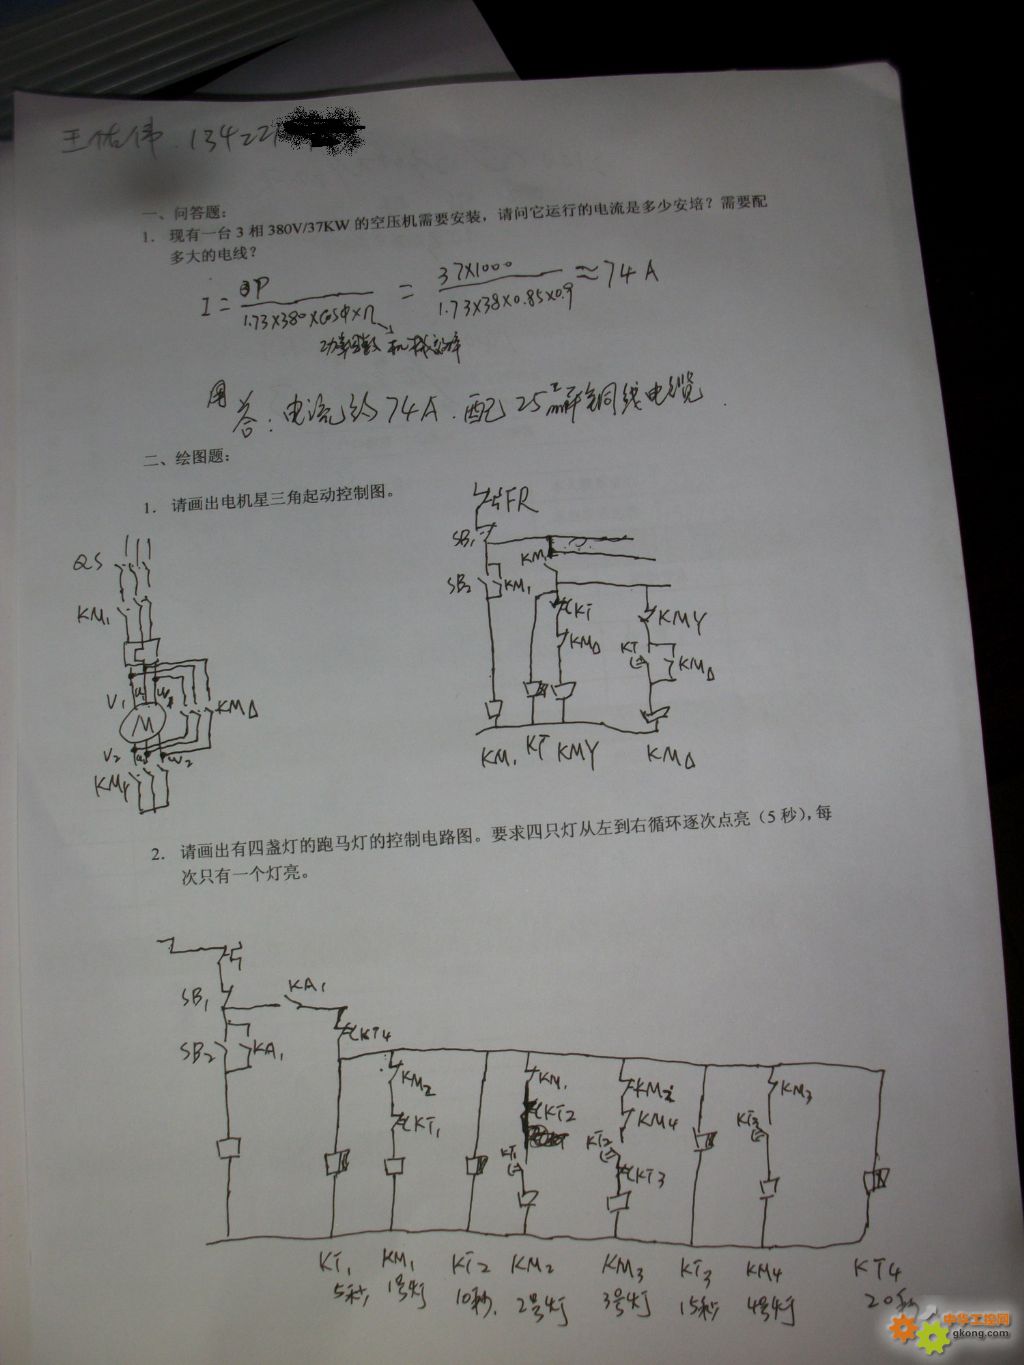 王佑伟. 13422
一、问答题:
1. 现有一台 3 相 380V/37KW 的空压机需要安装，请问它运行的电流是多少安培？需要配
多大的电线？
I = P / 1.73×380×cosφ×η = 37×1000 / 1.73×38×0.85×0.9 ≈ 74A
功率因数 机械效率
答: 电流约74A. 配25mm²铜线电缆.
二、绘图题:
1. 请画出电机星三角起动控制图。
FR
SB1
QS
KM
SB2
KM1
KM1
KT
KMY
KM△
KT
KM△
V1
KM△
M
V2
W2
KMY
KM1
KT
KMY
KM△
2. 请画出有四盏灯的跑马灯的控制电路图。要求四只灯从左到右循环逐次点亮（5 秒），每
次只有一个灯亮。
SB1
KA1
KT4
SB2
KA1
KM2
KM1
KM2
KM3
KT1
KT2
KM4
KT3
KT1
KT2
KT3
KT1
KM1
KT2
KM2
KM3
KT3
KM4
KT4
5秒
1号灯
10秒.
2号灯
3号灯
15秒
4号灯
20秒
中华工控网
gkong.com